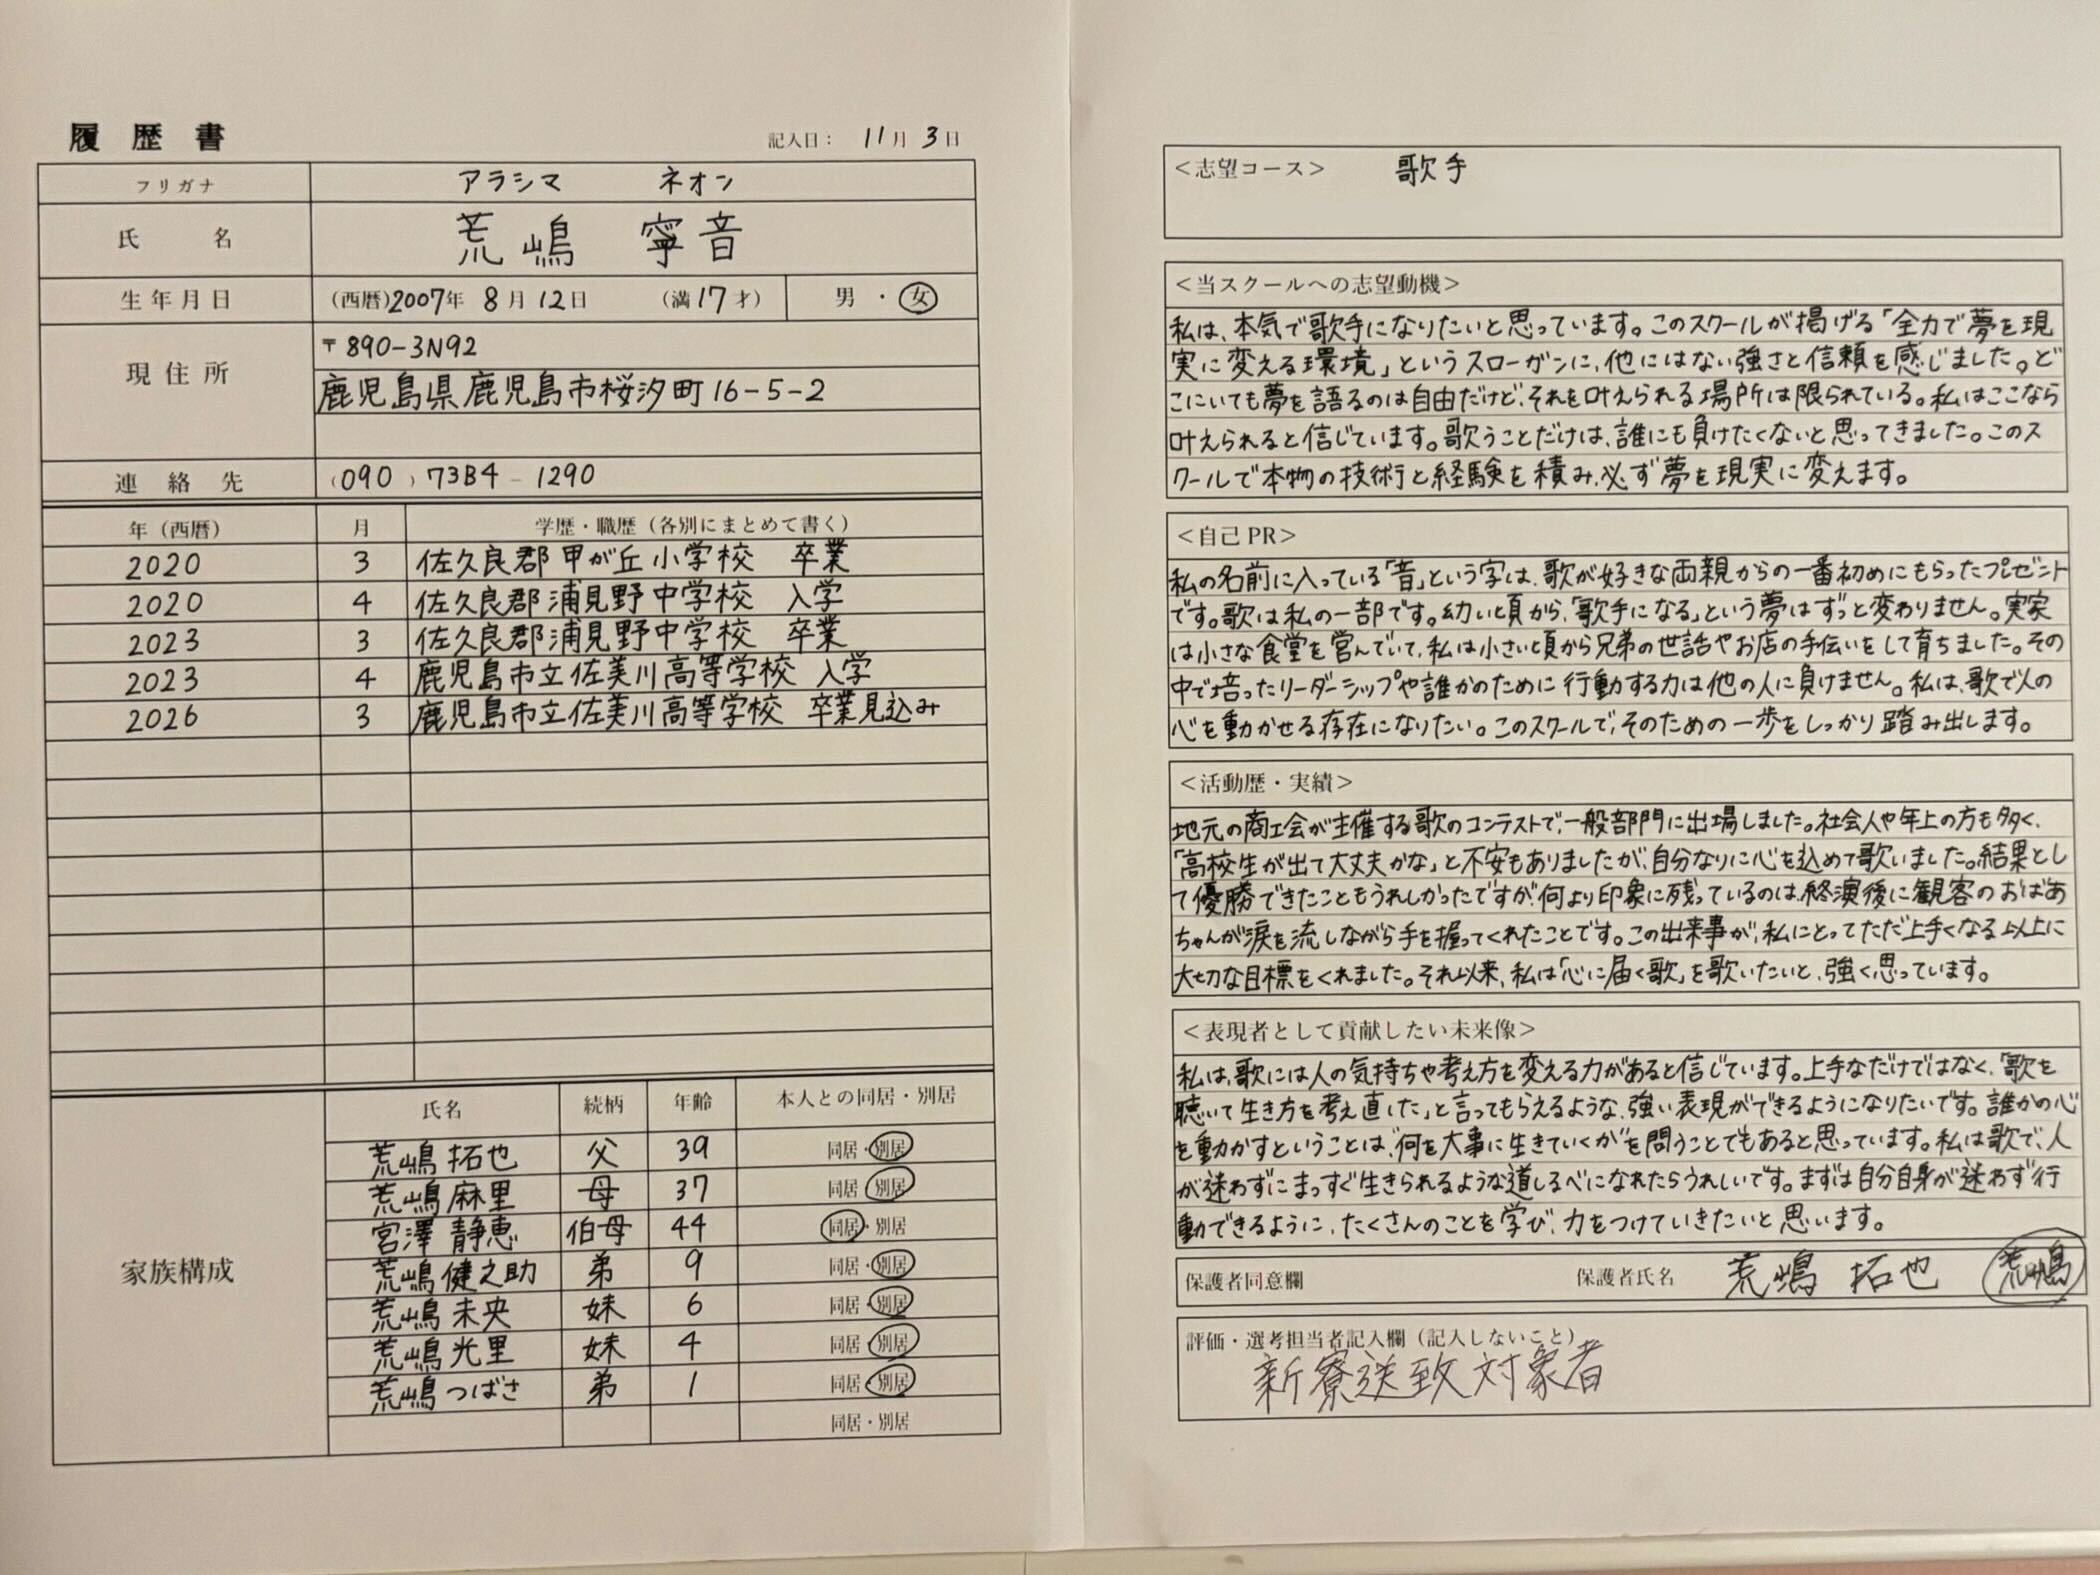 履歴書
記入日： 11月 3日
フリガナ アラシマ ネオン
氏名 荒嶋 寧音
生年月日 (西暦)2007年 8月12日 (満17才) 男・女
現住所 〒890-3N92
鹿児島県鹿児島市桜汐町16-5-2
連絡先 (090)73B4-1290
年（西暦） 月 学歴・職歴（各別にまとめて書く）
2020 3 佐久良郡甲が丘小学校 卒業
2020 4 佐久良郡浦見野中学校 入学
2023 3 佐久良郡浦見野中学校 卒業
2023 4 鹿児島市立佐美川高等学校 入学
2026 3 鹿児島市立佐美川高等学校 卒業見込み
家族構成
氏名 続柄 年齢 本人との同居・別居
荒嶋拓也 父 39 同居・別居
荒嶋麻里 母 37 同居・別居
宮澤静恵 伯母 44 同居・別居
荒嶋健之助 弟 9 同居・別居
荒嶋未央 妹 6 同居・別居
荒嶋光里 妹 4 同居・別居
荒嶋つばさ 弟 1 同居・別居
同居・別居
＜志望コース＞ 歌手
＜当スクールへの志望動機＞
私は、本気で歌手になりたいと思っています。このスクールが掲げる「全力で夢を現
実に変える環境」というスローガンに、他にはない強さと信頼を感じました。ど
こにいても夢を語るのは自由だけど、それを叶えられる場所は限られている。私はここなら
叶えられると信じています。歌うことだけは、誰にも負けたくないと思ってきました。このス
クールで本物の技術と経験を積み、必ず夢を現実に変えます。
＜自己PR＞
私の名前に入っている「音」という字は、歌が好きな両親からの一番初めにもらったプレゼント
です。歌は私の一部です。幼い頃から、「歌手になる」という夢はずっと変わりません。実家
は小さな食堂を営んでいて、私は小さい頃から兄弟の世話やお店の手伝いをして育ちました。その
中で培ったリーダーシップや誰かのために行動する力は他の人に負けません。私は、歌で人の
心を動かせる存在になりたい。このスクールで、そのための一歩をしっかり踏み出します。
＜活動歴・実績＞
地元の商工会が主催する歌のコンテストで、一般部門に出場しました。社会人や年上の方も多く、
「高校生が出て大丈夫かな」と不安もありましたが、自分なりに心を込めて歌いました。結果とし
て優勝できたこともうれしかったですが、何より印象に残っているのは、終演後に観客のおばあ
ちゃんが涙を流しながら手を握ってくれたことです。この出来事が、私にとってただ上手くなる以上に
大切な目標をくれました。それ以来、私は「心に届く歌」を歌いたいと、強く思っています。
＜表現者として貢献したい未来像＞
私は、歌には人の気持ちや考え方を変える力があると信じています。上手なだけではなく、「歌を
聴いて生き方を考え直した」と言ってもらえるような、強い表現ができるようになりたいです。誰かの心
を動かすということは、“何を大事に生きていくか”を問うことでもあると思っています。私は歌で、人
が迷わずにまっすぐ生きられるような道しるべになれたらうれしいです。まずは自分自身が迷わず行
動できるように、たくさんのことを学び、力をつけていきたいと思います。
保護者同意欄 保護者氏名 荒嶋 拓也 荒嶋
評価・選考担当者記入欄（記入しないこと）
新寮送致対象者